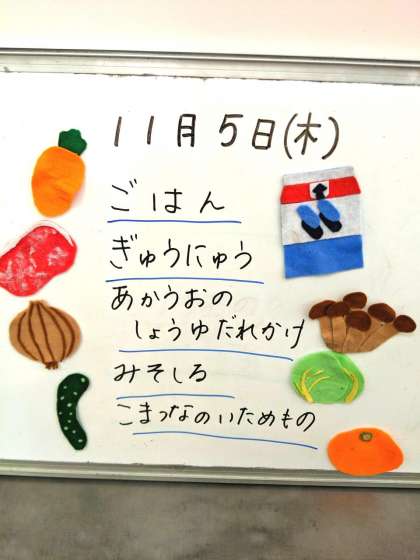 11月5日(木)
ごはん
ぎゅうにゅう
あかうおの
しょうゆだれかけ
みそしる
こまつなのいためもの